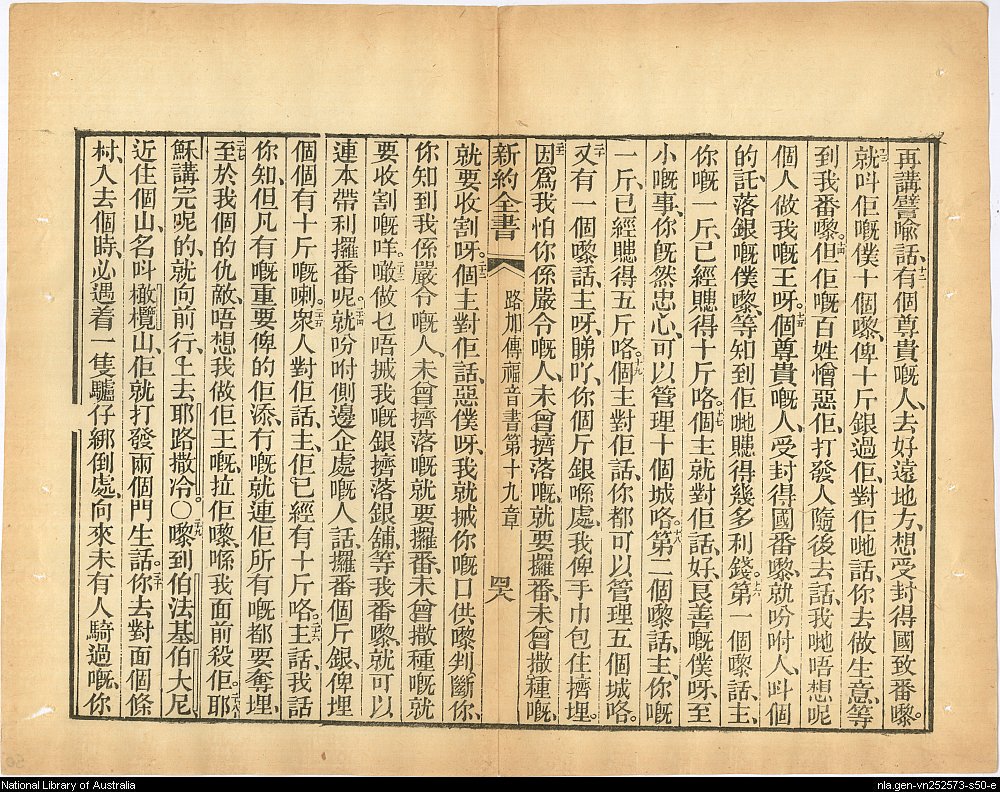 再講譬喻話、十二有個尊貴嘅人、去好遠地方、想受封得國致番嚟。
十三就呌佢嘅僕十個嚟、俾十斤銀過佢、對佢哋話、你去做生意、等
到我番嚟。十四但佢嘅百姓憎惡佢、打發人隨後去話、我哋唔想呢
個人做我嘅王呀。十五個尊貴嘅人、受封得國番嚟、就吩咐人、呌個
的託落銀嘅僕嚟、等知到佢哋賺得幾多利錢。十六第一個嚟話、主、
你嘅一斤、已經賺得十斤咯。十七個主就對佢話、好、良善嘅僕呀、至
小嘅事、你旣然忠心、可以管理十個城咯。十八第二個嚟話、主、你嘅
一斤、已經賺得五斤咯。十九個主對佢話、你都可以管理五個城咯。
二十又有一個嚟話、主呀、睇吖、你個斤銀喺處、我俾手巾包住擠埋。
因爲我怕你係嚴令嘅人、未曾擠落嘅、就要攞番、未曾撒種嘅、
新約全書
路加傳福音書第十九章
四八
就要收割呀。二十二個主對佢話、惡僕呀、我就搣你嘅口供嚟判斷你、
你知到我係嚴令嘅人、未曾擠落嘅就要攞番、未曾撒種嘅就
要收割嘅咩。二十三噉做乜唔搣我嘅銀擠落銀舖、等我番嚟、就可以
連本帶利攞番呢。二十四就吩咐側邊企處嘅人話、攞番個斤銀、俾埋
個個有十斤嘅喇。二十五衆人對佢話、主、佢已經有十斤咯。二十六主話、我話
你知、但凡有嘅重要俾的佢添、冇嘅就連佢所有嘅都要奪埋、
二十七至於我個的仇敵、唔想我做佢王嘅、拉佢嚟、喺我面前殺佢。二十八耶
穌講完呢的、就向前行、上去耶路撒冷。〇二十九嚟到伯法基伯大尼、
近住個山、名呌橄欖山、佢就打發兩個門生話。三十你去對面個條
村、入去個時、必遇着一隻驢仔綁倒處、向來未有人騎過嘅、你
National Library of Australia
nla.gen-vn252573-s50-e